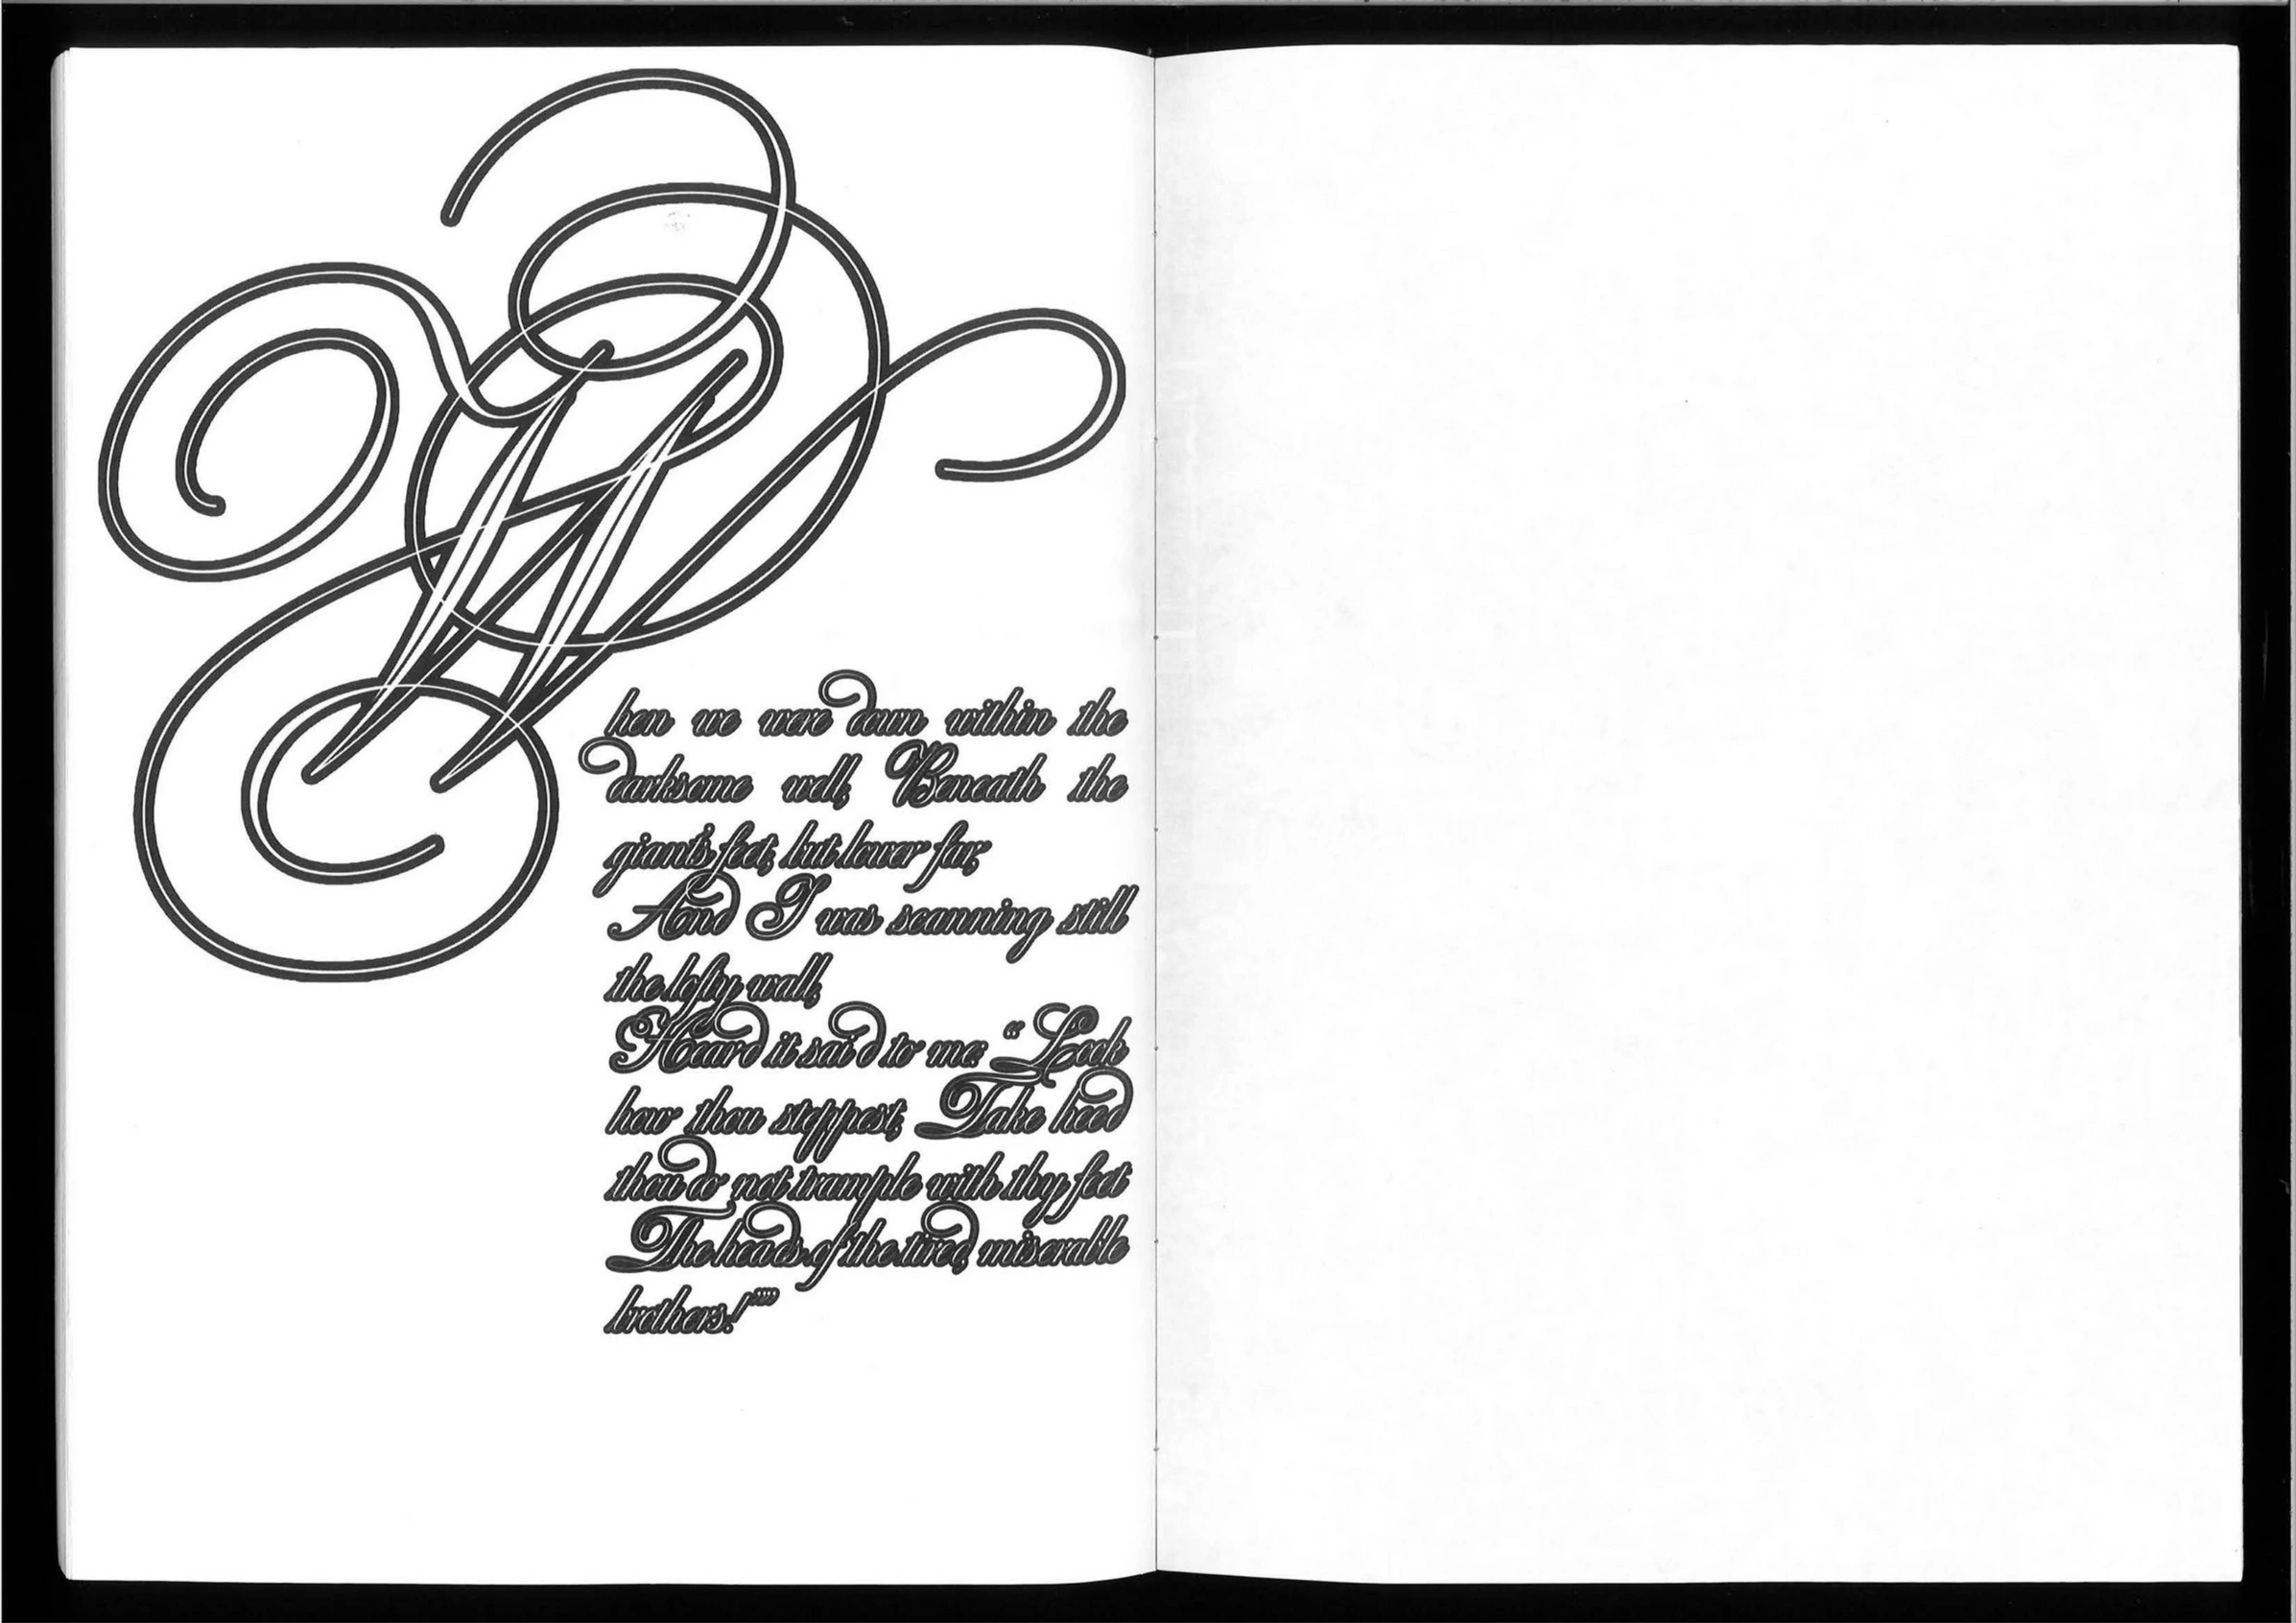 When we were down within the
darksome well, Beneath the
giant's feet, but lower far,
And I was scanning still
the lofty wall,
Heard it said to me: “Look
how thou steppest, Take heed
thou do not trample with thy feet
The heads of the tired, miserable
brothers!””